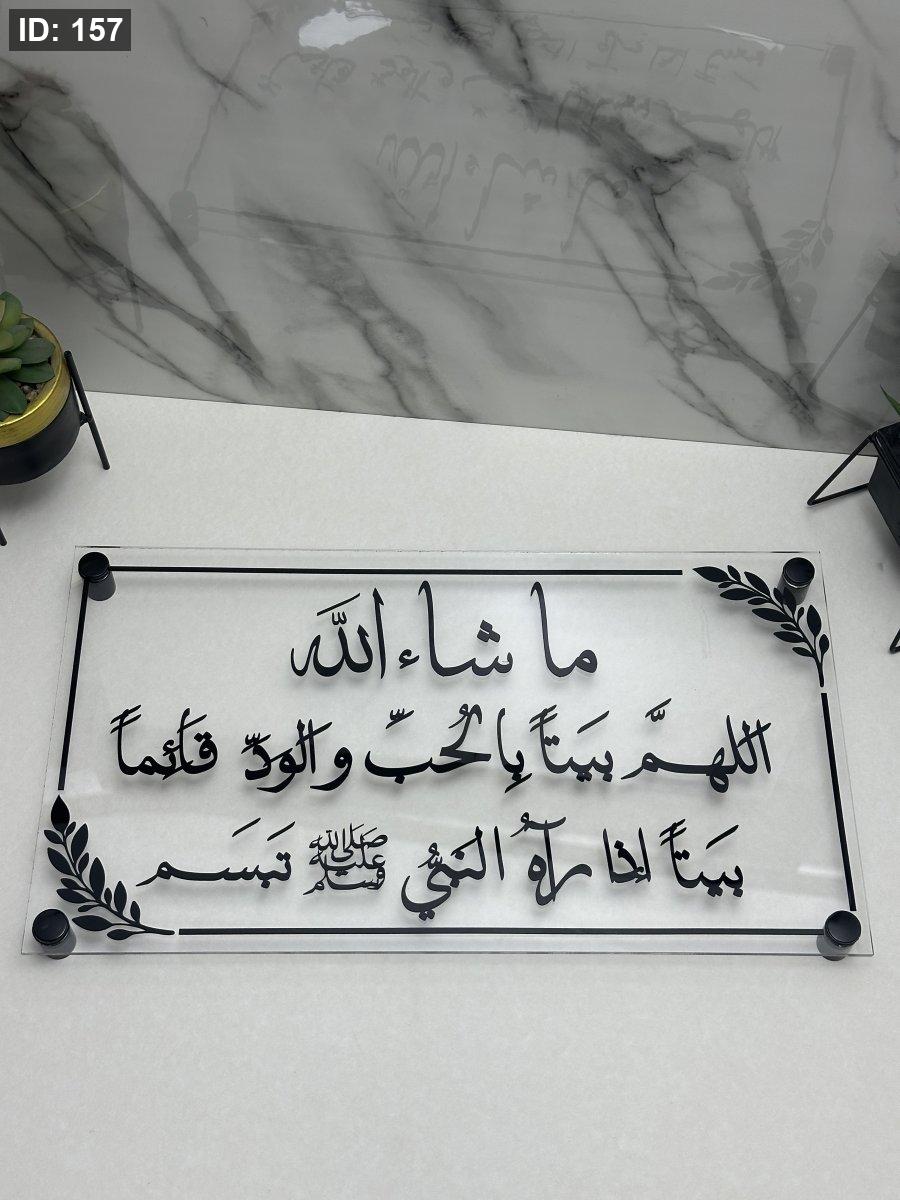 ID: 157
ما شاء الله
اللهمَّ بيَتاً بِالحُبِّ والودِّ قَائِماً
بيَتاً اِذا رآهُ النَبيُّ ﷺ تبَسَم